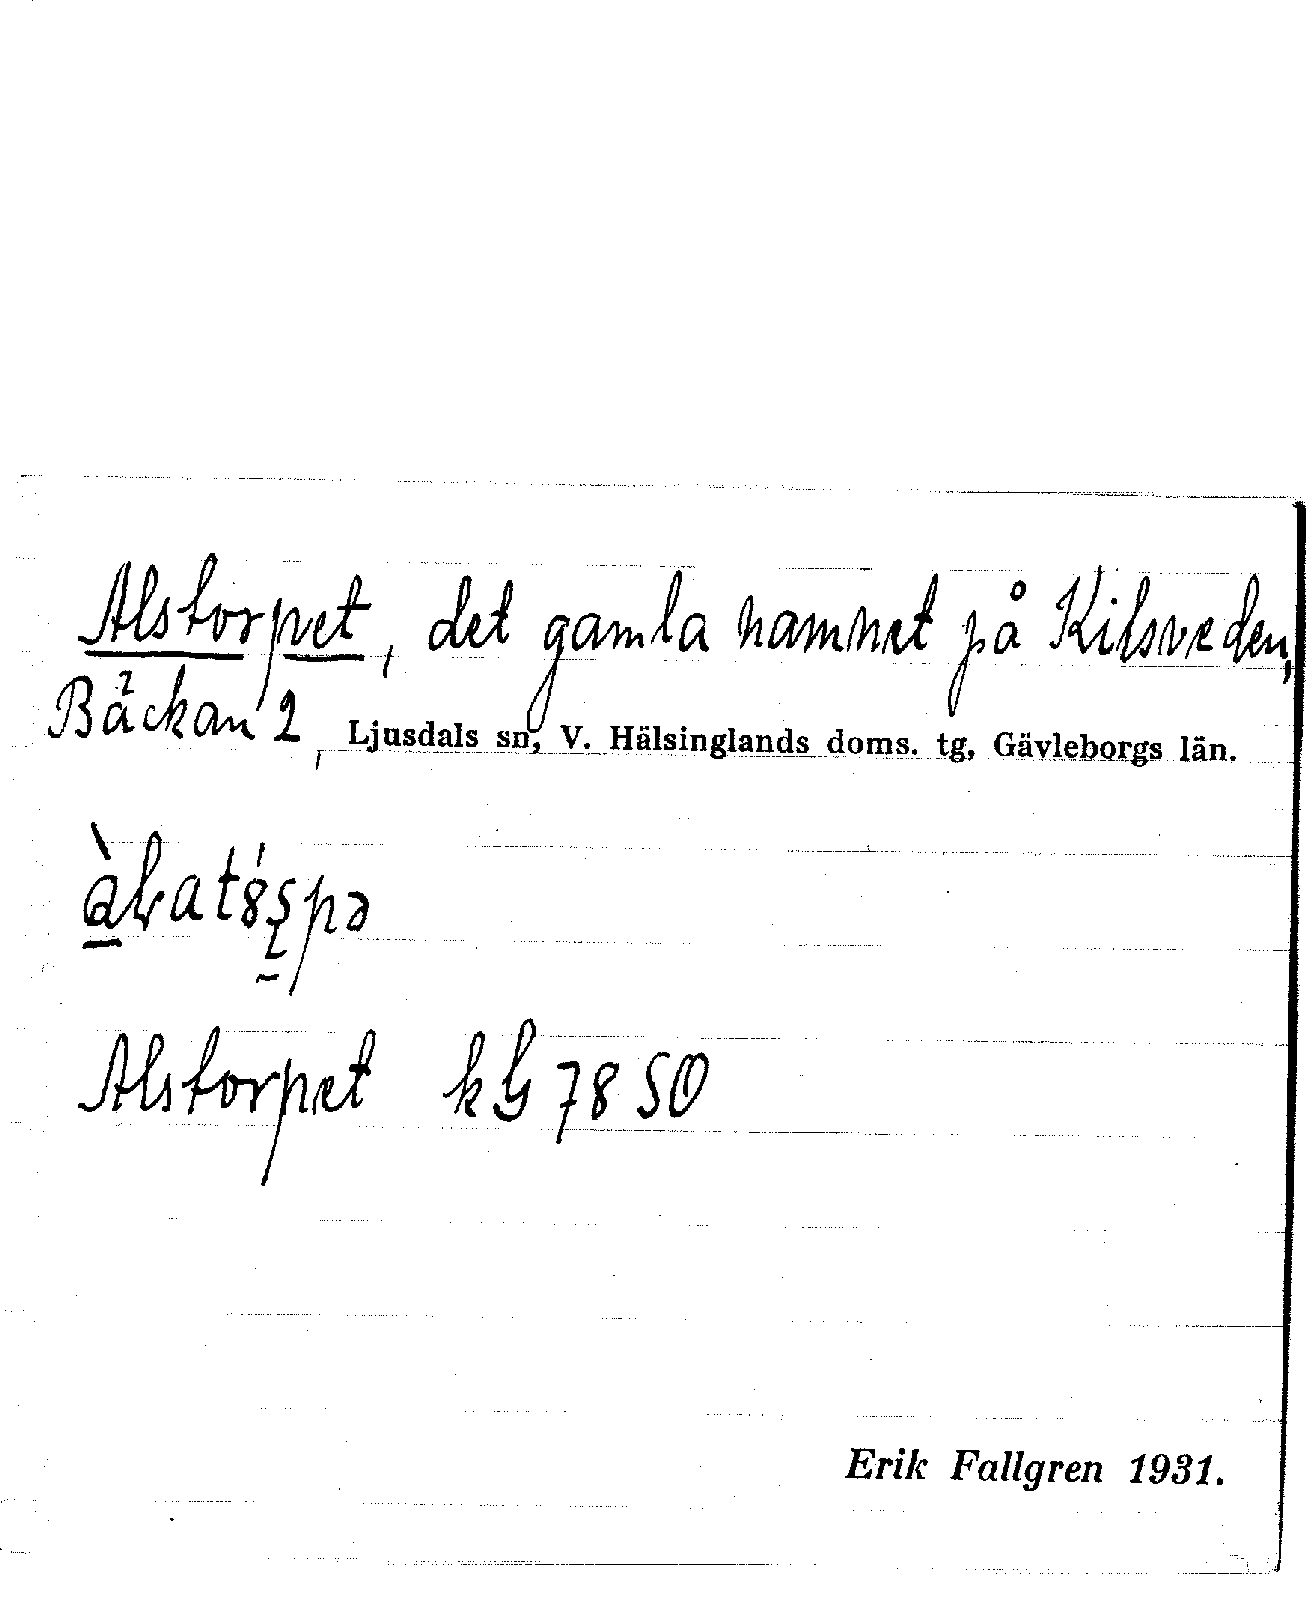 Alstorpet, det gamla namnet på Kilsveden,
Bäckan 2, Ljusdals sn, V. Hälsinglands doms. tg, Gävleborgs län.
Alstorpet kG 78 SO
Erik Fallgren 1931.